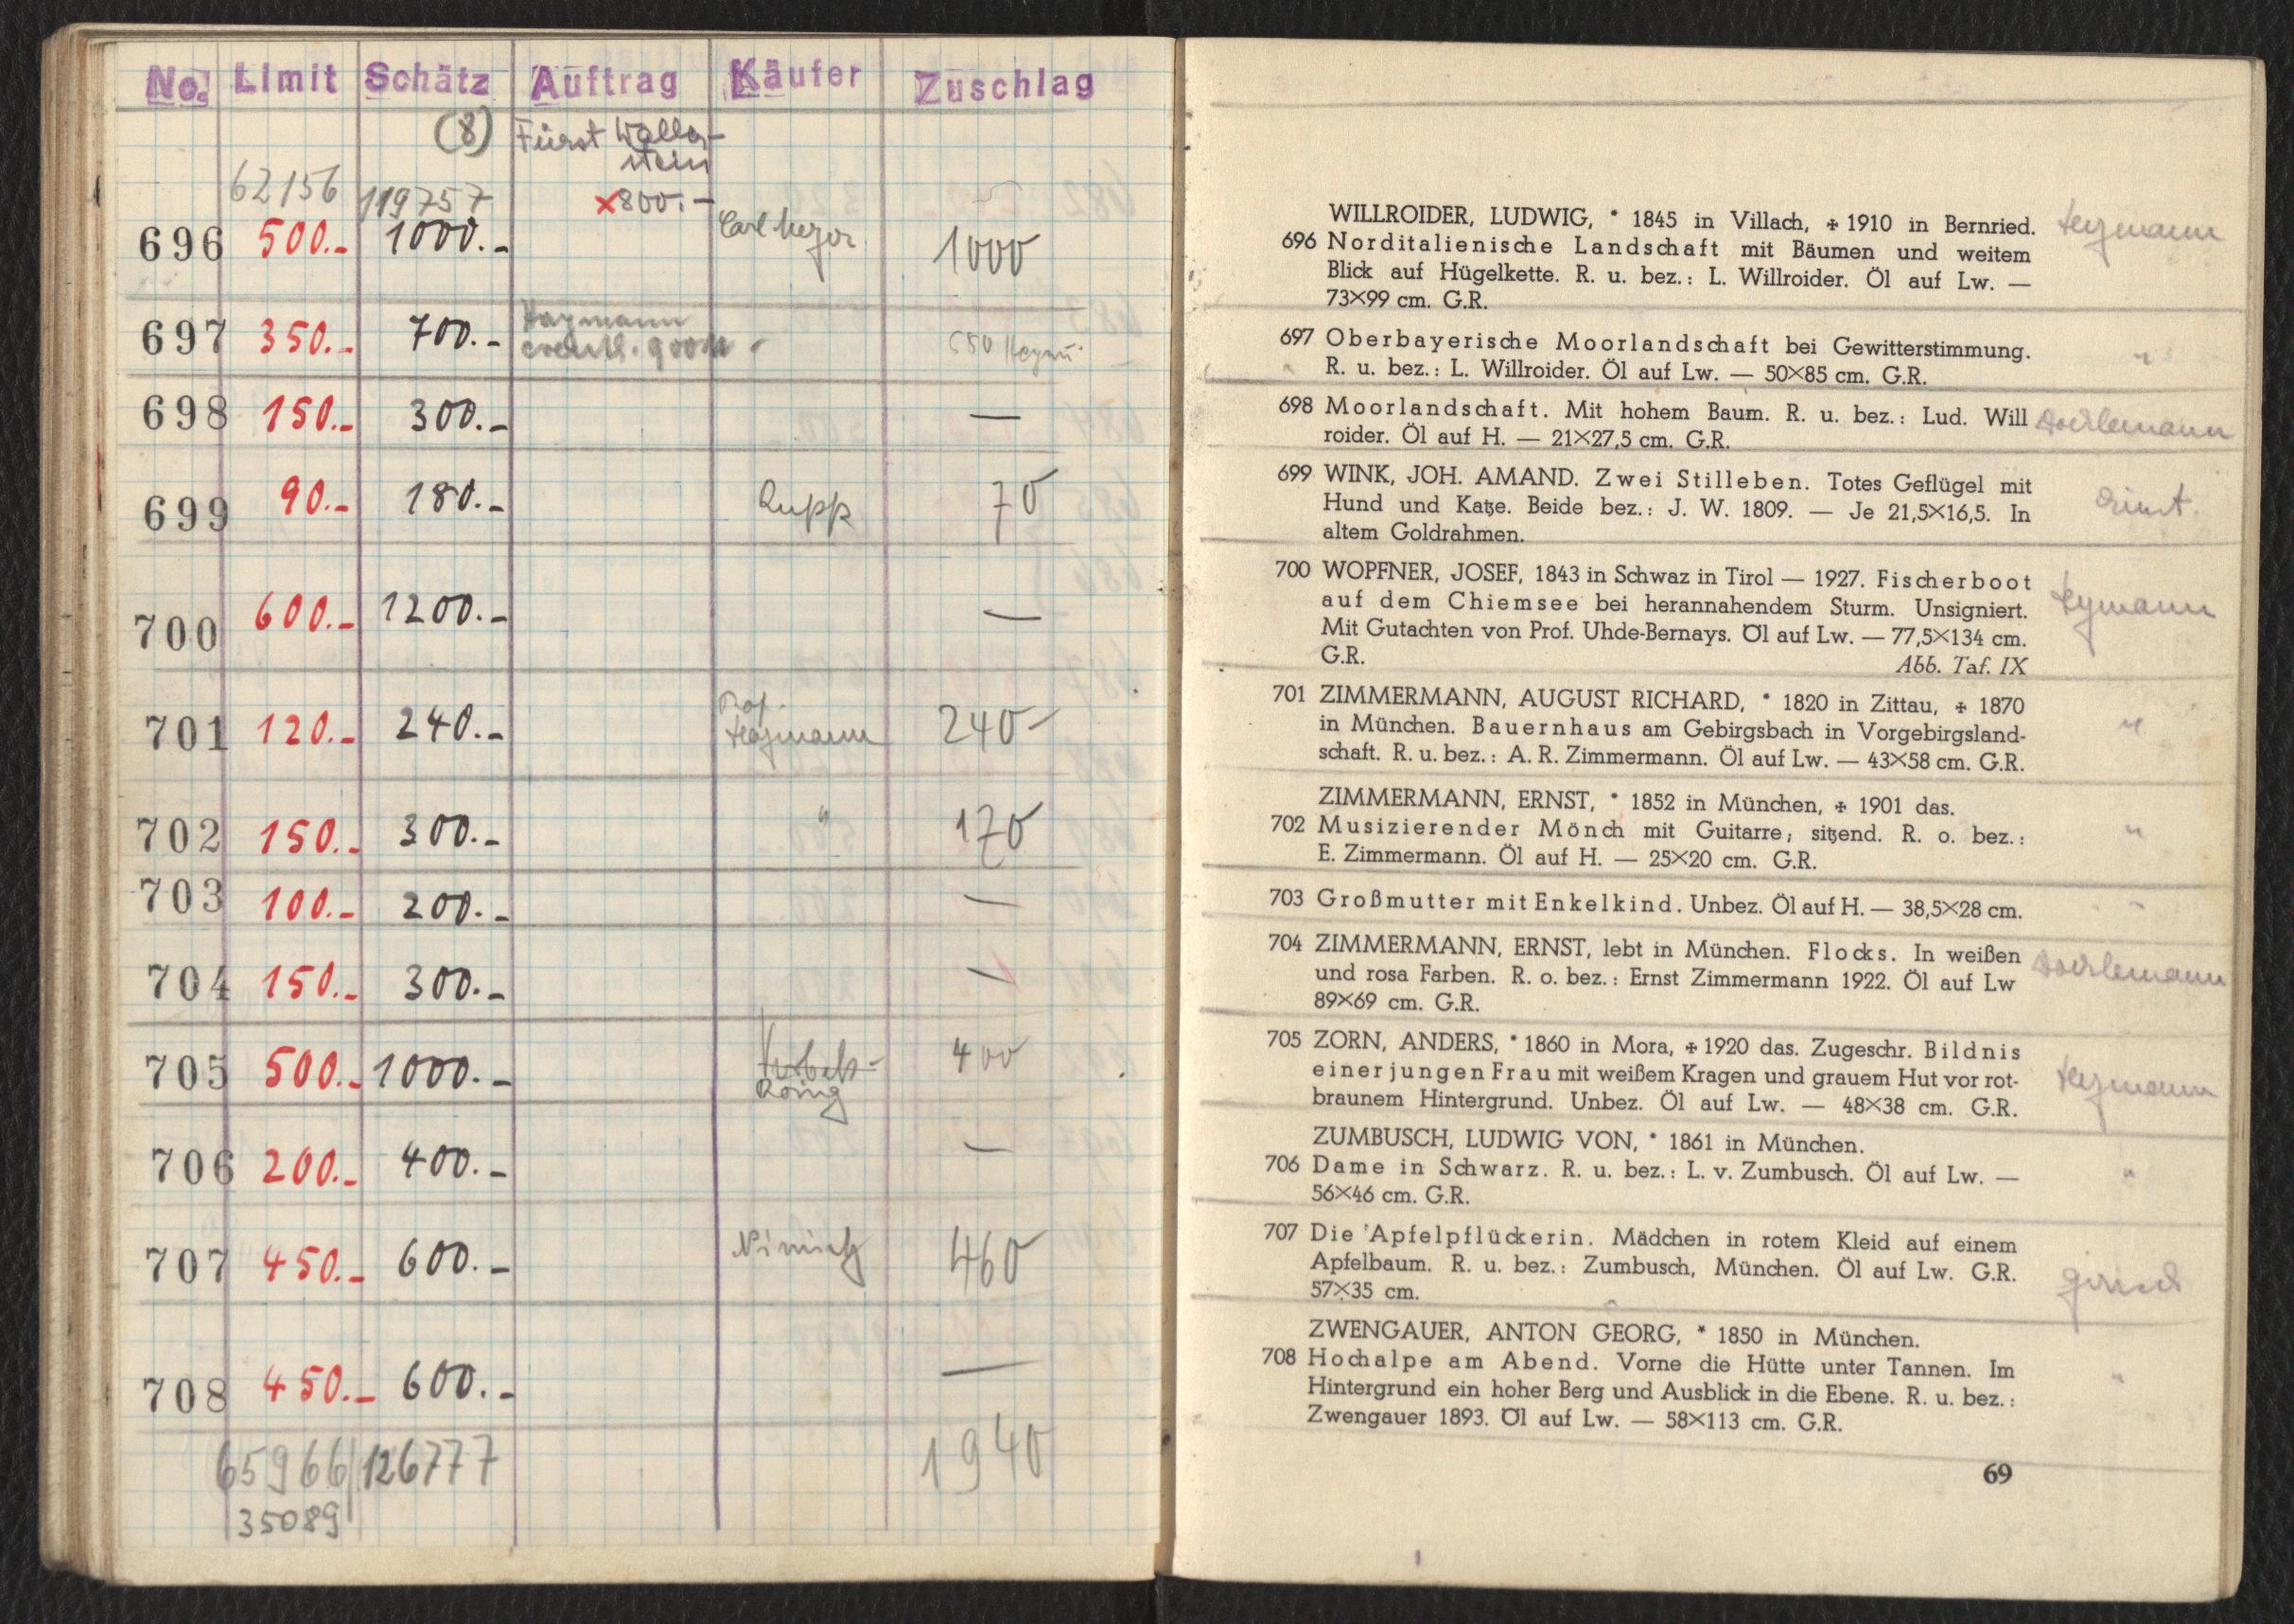 No. Limit Schätz Auftrag Käufer Zuschlag
(8) Fürst Waller-
stein
62156 119757 ×800.-
696 500.- 1000.- Carl Meyer 1000
697 350.- 700.- Heymann 550
eventl. 900
698 150.- 300.- —
699 90.- 180.- Rupp 70
700 600.- 1200.- —
701 120.- 240.- Prof. Heymann 240-
702 150.- 300.- " 170
703 100.- 200.- —
704 150.- 300.- —
705 500.- 1000.- 400
706 200.- 400.- —
707 450.- 600.- 460
708 450.- 600.- —
65966 126777 1940
35089
WILLROIDER, LUDWIG, * 1845 in Villach, ✠ 1910 in Bernried. Heymann
696 Norditalienische Landschaft mit Bäumen und weitem
Blick auf Hügelkette. R. u. bez.: L. Willroider. Öl auf Lw. —
73×99 cm. G.R.
697 Oberbayerische Moorlandschaft bei Gewitterstimmung. "
R. u. bez.: L. Willroider. Öl auf Lw. — 50×85 cm. G.R.
698 Moorlandschaft. Mit hohem Baum. R. u. bez.: Lud. Will
roider. Öl auf H. — 21×27,5 cm. G.R.
699 WINK, JOH. AMAND. Zwei Stilleben. Totes Geflügel mit
Hund und Katze. Beide bez.: J. W. 1809. — Je 21,5×16,5. In
altem Goldrahmen.
700 WOPFNER, JOSEF, 1843 in Schwaz in Tirol — 1927. Fischerboot
auf dem Chiemsee bei herannahendem Sturm. Unsigniert. Heymann
Mit Gutachten von Prof. Uhde-Bernays. Öl auf Lw. — 77,5×134 cm.
G.R. Abb. Taf. IX
701 ZIMMERMANN, AUGUST RICHARD, * 1820 in Zittau, ✠ 1870
in München. Bauernhaus am Gebirgsbach in Vorgebirgsland- "
schaft. R. u. bez.: A. R. Zimmermann. Öl auf Lw. — 43×58 cm. G.R.
ZIMMERMANN, ERNST, * 1852 in München, ✠ 1901 das.
702 Musizierender Mönch mit Guitarre, sitzend. R. o. bez.: "
E. Zimmermann. Öl auf H. — 25×20 cm. G.R.
703 Großmutter mit Enkelkind. Unbez. Öl auf H. — 38,5×28 cm. "
704 ZIMMERMANN, ERNST, lebt in München. Flocks. In weißen
und rosa Farben. R. o. bez.: Ernst Zimmermann 1922. Öl auf Lw
89×69 cm. G.R.
705 ZORN, ANDERS, * 1860 in Mora, ✠ 1920 das. Zugeschr. Bildnis
einer jungen Frau mit weißem Kragen und grauem Hut vor rot- Heymann
braunem Hintergrund. Unbez. Öl auf Lw. — 48×38 cm. G.R.
ZUMBUSCH, LUDWIG VON, * 1861 in München.
706 Dame in Schwarz. R. u. bez.: L. v. Zumbusch. Öl auf Lw. — "
56×46 cm. G.R.
707 Die Apfelpflückerin. Mädchen in rotem Kleid auf einem
Apfelbaum. R. u. bez.: Zumbusch, München. Öl auf Lw. G.R.
57×35 cm.
ZWENGAUER, ANTON GEORG, * 1850 in München.
708 Hochalpe am Abend. Vorne die Hütte unter Tannen. Im "
Hintergrund ein hoher Berg und Ausblick in die Ebene. R. u. bez.:
Zwengauer 1893. Öl auf Lw. — 58×113 cm. G.R.
69